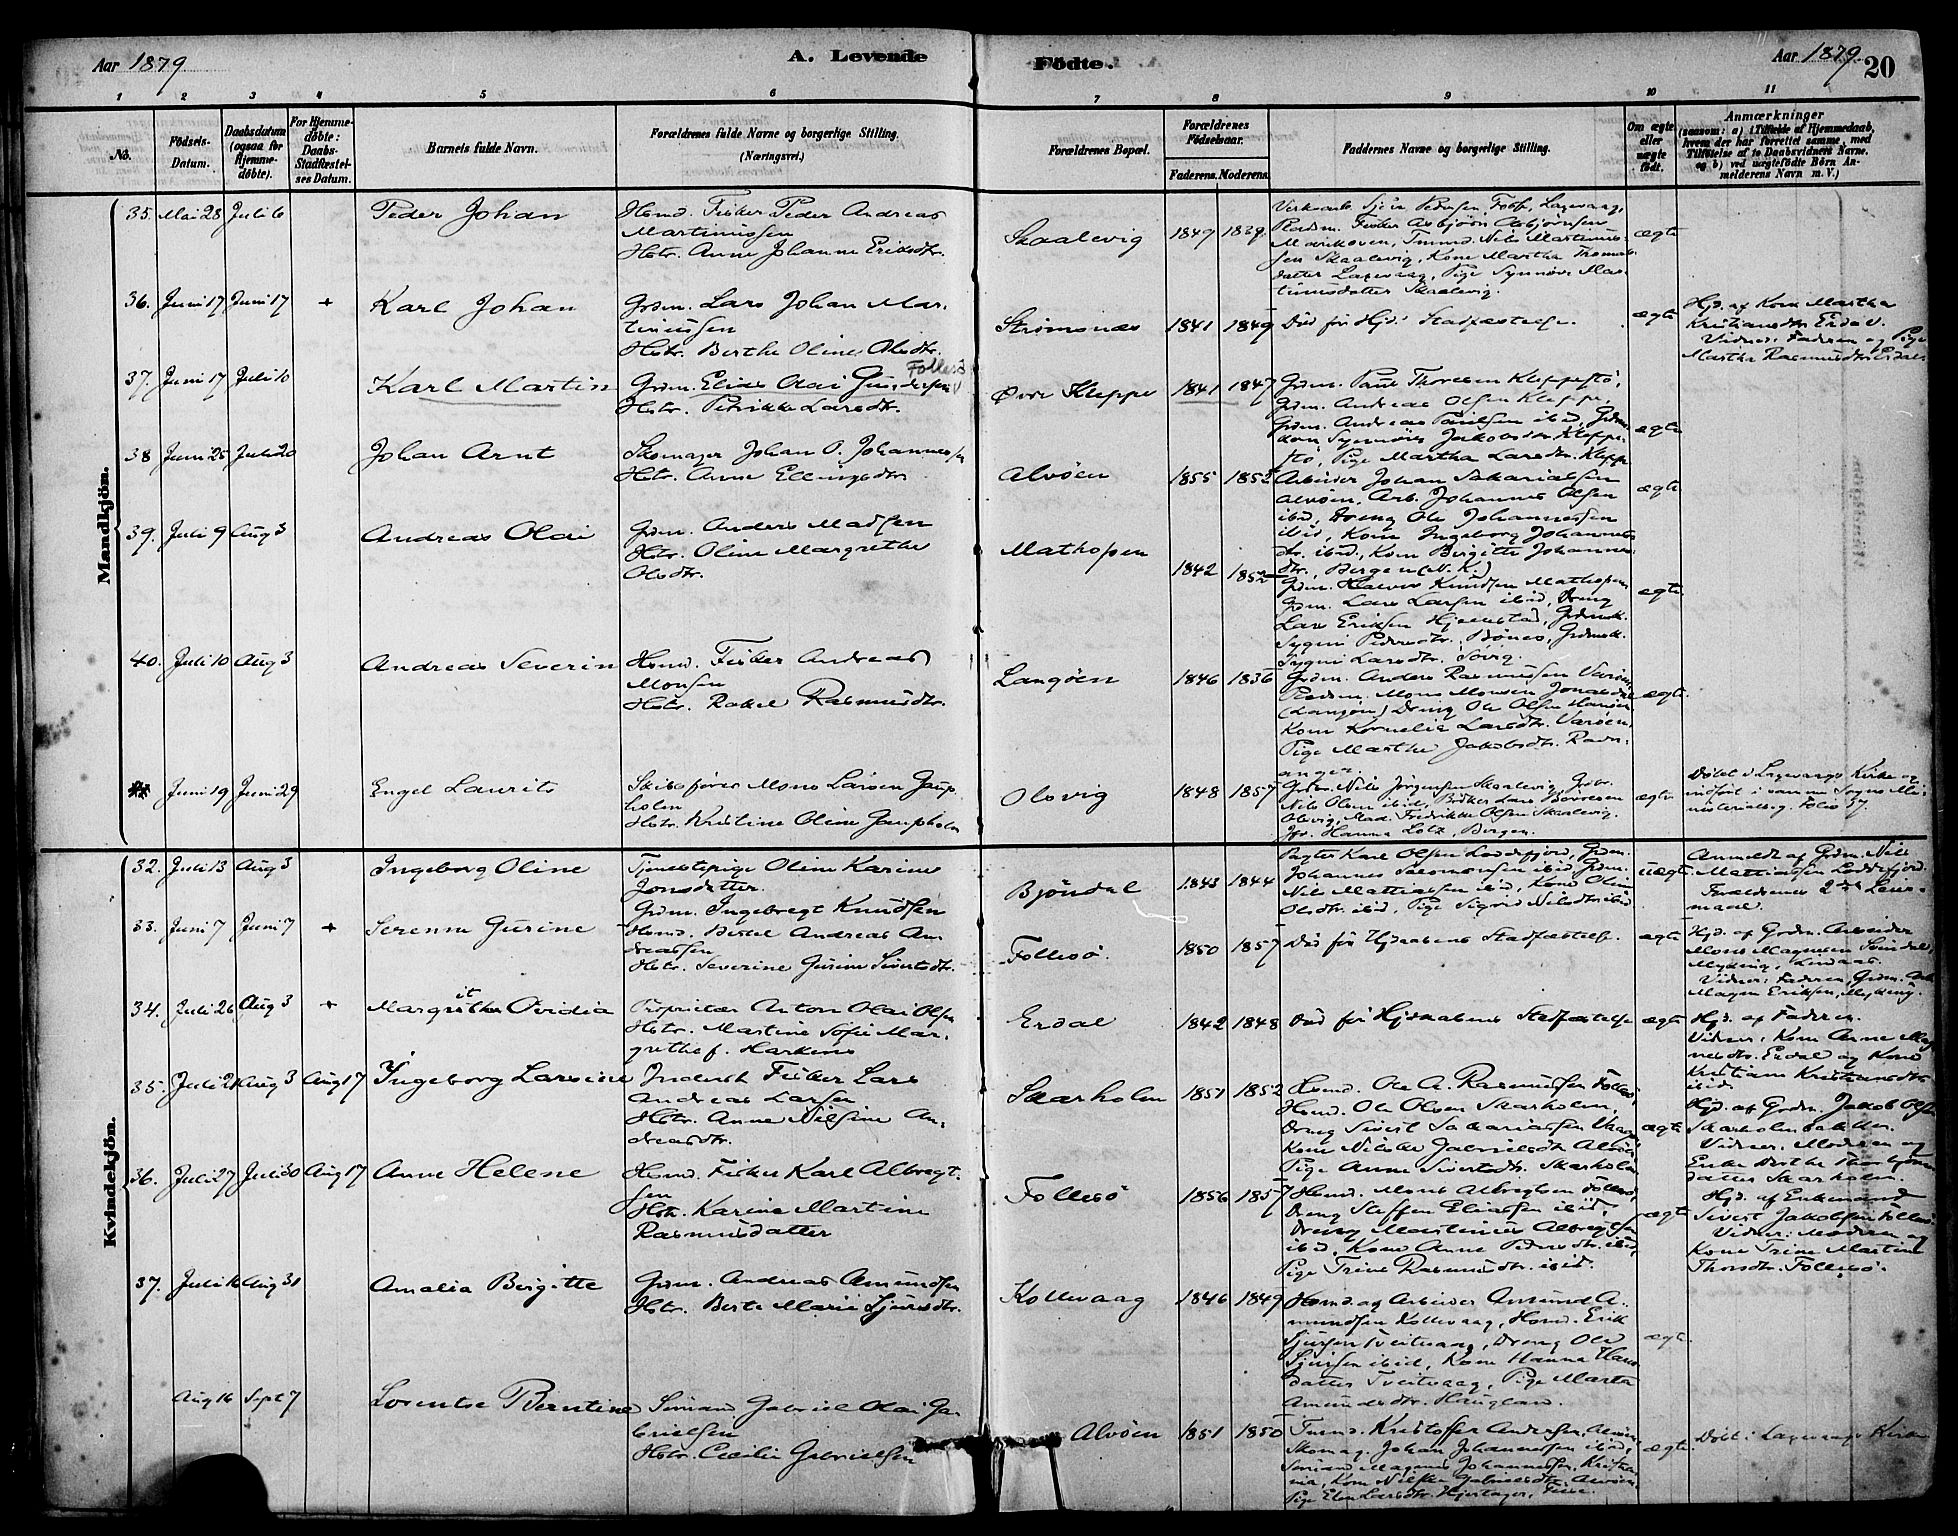 Aar 1879
A. Levende
Födte.
Aar 1879
20
1 2 3 4 5 6 7 8 9 10 11
No.
Födsels-
Datum.
Daabsdatum
(ogsaa for
Hjemme-
döbte).
For Hjemme-
döbte:
Daabs-
Stadfæstel-
ses Datum.
Barnets fulde Navn.
Forældrenes fulde Navne og borgerlige Stilling.
(Næringsvei.)
Forældrenes Bopæl.
Forældrenes
Födselsaar.
Faderens. Moderens.
Faddernes Navne og borgerlige Stilling.
Om ægte
eller
uægte
födt.
Anmærkninger
(saasom: a) i Tilfælde af Hjemmedaab,
hvem der har forrettet samme, med
Tilföielse af to Daabsvidners Navne,
og b) ved uægtefödte Börn An-
melderens Navn m. V.)
Mandkjön.
35. Mai 28 Juli 6 Peder Johan
Hsmd. Fisker Peder Andreas
Martinussen
Hstr. Anne Johanne Eriksdtr.
Skaalevig 1849 1839
ægte
36. Juni 17 Juni 17 + Karl Johan
Grdm. Lars Johan Mar-
tinussen
Hstr. Berthe Oline Olsdtr.
Strömsnes 1841 1849 Död för Hjd: Stadfæstelse.
ægte
Hjd. af Kone Martha
Kristiansdtr. Erdal.
Vidner: Faderen og Pige
Martha Rasmusdtr. Erdal
37. Juni 17 Juli 10 Karl Martin
Follesö
Grdm. Elias Olai Gundersen
Hstr. Petrikke Larsdtr.
Øvre Kleppe 1841 1847
Grdm. Paul Thoresen Kleppestö,
Grdm. Andreas Olsen Kleppe,
Grdm. Andreas Paulsen ibid, Grdm.
kone Synnöve Jakobsdtr Kleppe-
stö, Pige Martha Larsdtr. Kleppe
ægte
38 Juni 25 Juli 20 Johan Arnt
Skomager Johan O. Johannessen
Hstr. Anne Ellingsdtr.
Alvöen 1855 1852
Arbeider Johan Sakariassen
Alvöen, Arb. Johannes Olsen
ibid, Dreng Ole Johannessen
ibid, Kone Ingeborg Johannes-
dtr. ibid, Kone Birgitte Johannes-
dtr. Bergen (N. K.)
ægte
39. Juli 9 Aug 3 Andreas Olai
Grdm. Anders Madsen
Hstr. Oline Margrethe
Olsdtr.
Mathopen 1842 1852
Grdm. Knudsen Mathopen
Grdm. Lars Larsen ibid, Dreng
Lars Eriksen Hjemstad, Grdmk.
Sygni Pedersdtr. Bönes, Grdmk.
Sygni Larsdtr. Sörig.
ægte
40. Juli 10 Aug 3 Andreas Severin
Hsmd. Fisker Andreas
Monsen
Hstr. Rakel Rasmusdtr.
Langöen 1846 1836
Grdm. Anders Rasmussen Varöen,
Pladsm. Mons Monsen
(Langöen) Dreng Ole Olsen
Kone Kornelia Larsdtr. Varöen,
Pige Marthe Jakobsdtr. Ravn-
anger.
ægte
Juni 19 Juni 29 Engel Laurits
Skibsförer Mons Larsen Gaup-
holm
Hstr. Kristine Oline Gaupholm
Olsvig 1848 1857
Grdm. Nils Jörgensen Skaalevig,
Nils Olsen ibid,
Olsvig, Mad. Fredrikke Olsen Skaalevig.
Jfr. Hanna Lotz, Bergen.
ægte
Döbt i Laxevaags Kirke og
indfört i samme Sogns Mi-
nisterialbog Folio 37.
Kvindekjön.
32. Juli 13 Aug 3 Ingeborg Oline
Tjenestepige Oline Karine
Jonsdatter.
Grdm. Ingebregt Knudsen
Bjöndal 1843 1844
Pagter Karl Olsen Loddefjord, Grdm.
Johannes Salomonsen ibid, Grdm.
Nils Mathiasen ibid, Kone Oline
Olsdtr. ibid, Pige Sigrid Nilsdtr. ibid
uægte
Anmeldt af Grdm. Nils
Mathiasen Loddefjord.
Forældrenes 2det Leier-
maal.
33. Juni 7 Juni 7 + Serenne Gurine
Hsmd. Bertel Andreas An-
dreassen
Hstr. Severine Gurine Sivertsdtr.
Follesö 1850 1857 Död för Hjdaabens Stadfæstelse.
ægte
Hjd. af Grdm. Arbeider
Mons Magnesen
Myking, Lindaas.
Vidner: Faderen, Grdm.
Magne Eriksen, Myking.
34. Juli 26 Aug 3 + Margrethe Ovidia
it
Proprietær Anton Olai Olsen
Hstr. Martine Sofie Mar-
grethe f. Harkens
Erdal 1842 1848 Död för Hjdaabens Stadfæstelse
ægte
Hjd. af Faderen.
Vidner: Kone Anne Mag-
nesdtr. Erdal og Kone
Kristiane Kristensdtr.
ibid.
35. Juli 21 Aug 3 Aug 17 Ingeborg Larsine
Inderst Fisker Lars
Andreas Larsen
Hstr. Anne Nilsine An-
dreasdtr.
Skarholm 1851 1852
Hsmd. Ole A. Rasmussen Follesö,
Hsmd. Ole Olsen Skarholm,
Dreng Sivert Sakariassen
Kone Nilske Gabrielsdtr Alvöen
Pige Anne Sivertsdtr. Skarholm
ægte
Hjd. af Grdm. Jakob Olsen
Skarholm
Vidner: Moderen og
Enke Berthe Thorbjörns-
datter Skarholm.
36. Juli 27 Juli 30 Aug 17 Anne Helene
Hsmd. Fisker Karl Albregt-
sen
Hstr. Karine Martine
Rasmusdatter
Follesö 1856 1857
Hsmd. Mons Albregtsen Follesö,
Dreng Steffen Eliassen ibid,
Dreng Martinus Albregtsen
ibid, Kone Anne Pedersdtr. ibid,
Pige Trine Rasmusdtr. ibid.
ægte
Hjd. af Enkemand
Sivert Jakobsen Follesö
Vidner: Moderen og
Kone Trine Martine
Thorsdtr. Follesö.
37. Juli 16 Aug 31 Amalia Birgitte
Grdm. Andreas Amundsen
Hstr. Berte Marie Sjursdtr.
Kollevaag 1846 1849
Hsmd. og Arbeider Amund A-
mundsen Kollevaag, Hsmd. Erik
Sjursen Tveitevaag, Dreng Ole
Sjursen ibid, Kone Hanna Hans-
datter Tveitevaag, Pige Marta
Amundsdtr. Haugland.
ægte.
Aug 16 Sept 7 Lorentse Berntine
Sömand Gabriel Olai Ga-
brielsen
Hstr. Cecilie Gabrielsen
Alvöen 1851 1850
Kristoffer Andersen, Alvöen
Skomag. Johan Johannessen ibid,
Sömand Magnus Johannessen, Kristia-
nia, Kone Nilske Gabrielsdtr. Alvöen,
Pige Elen Larsdtr. Hjertager,
ægte.
Döbt i Laxevaags Kirke